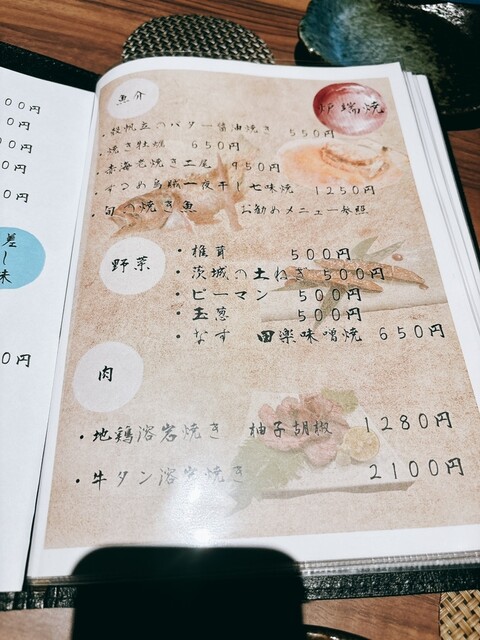 ００円
０円
００円
０円
０円
差し味
０円
炉端焼
魚介
・殻帆立のバター醤油焼き ５５０円
・焼き牡蠣 ６５０円
・赤海老焼き二尾 ９５０円
・するめ烏賊一夜干し七味焼 １２５０円
・旬の焼き魚 お勧めメニュー参照
野菜
・椎茸 ５００円
・茨城の土ねぎ ５００円
・ピーマン ５００円
・玉葱 ５００円
・なす 田楽味噌焼 ６５０円
肉
・地鶏溶岩焼き 柚子胡椒 １２８０円
・牛タン溶岩焼き ２１００円